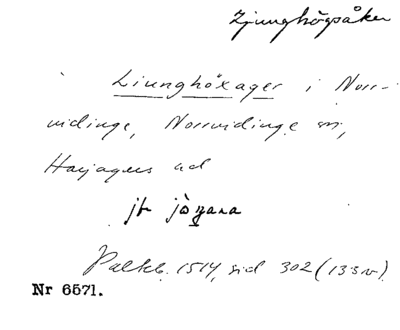 Ljunghögsåker
Liunghöxager i Norr-
vidinge, Norrvidinge sn,
Harjagers hd
jfr
Palteb. 1514, sid 302 (133v)
Nr 6571.